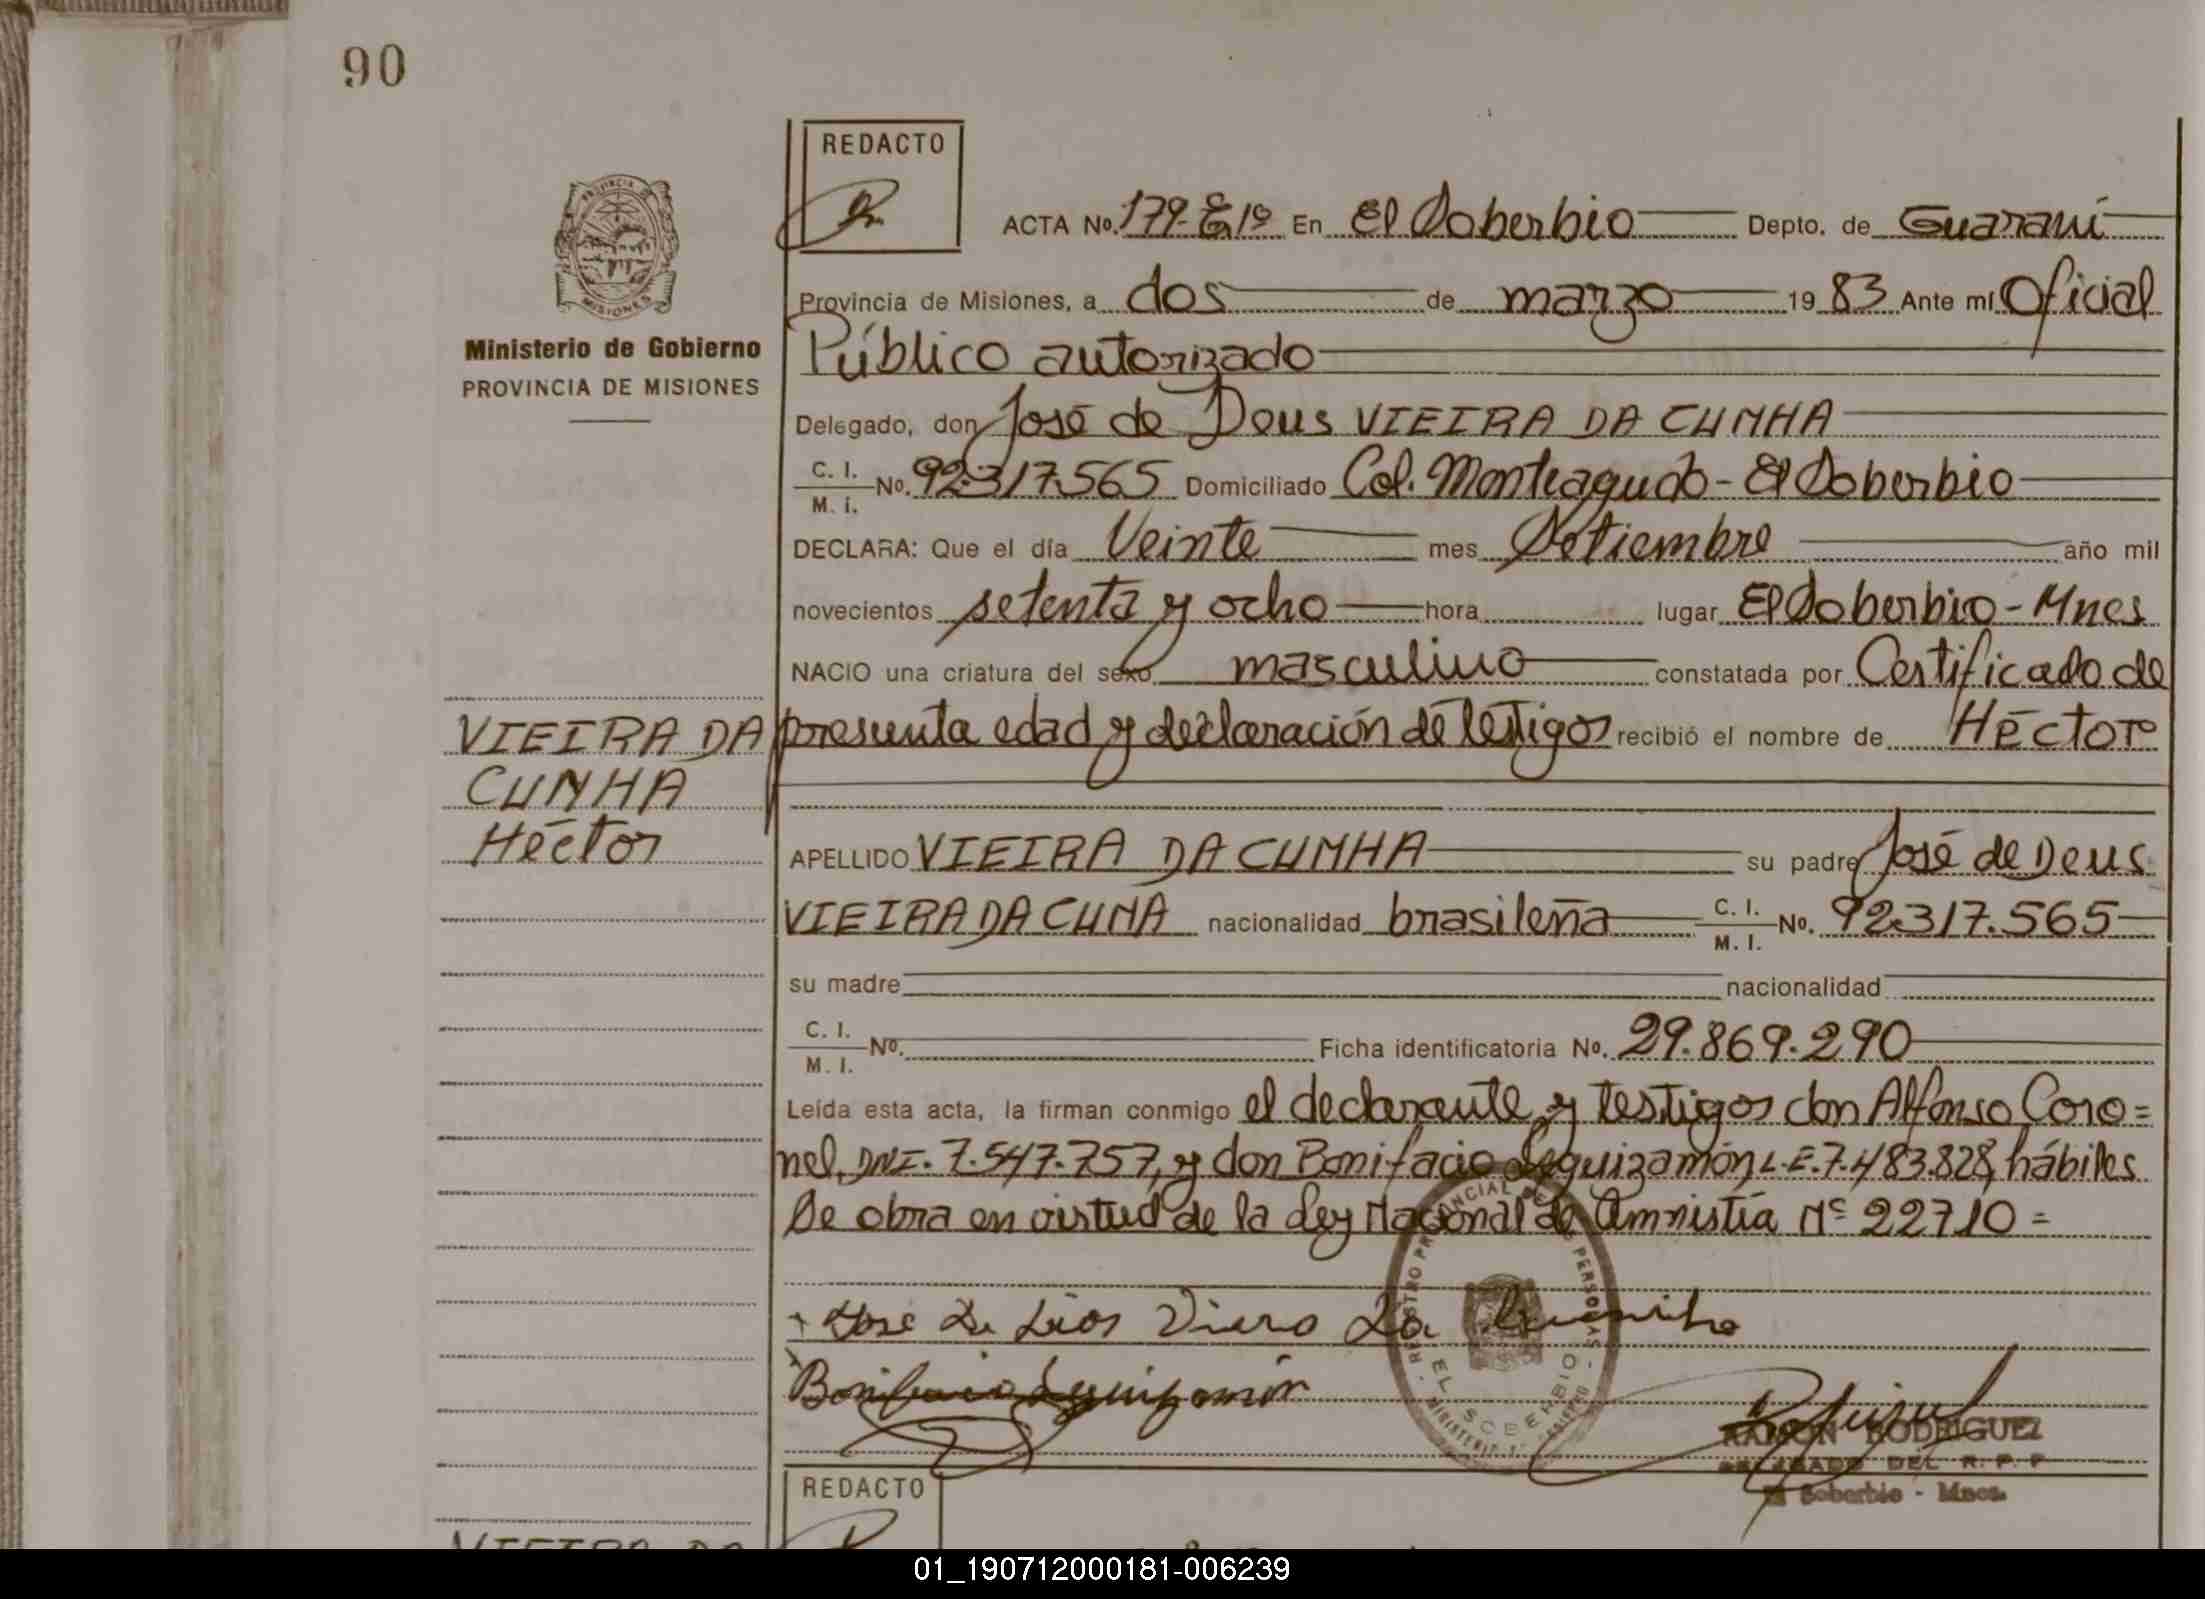 90
REDACTO
ACTA No. 179- Eº1º En El Soberbio Depto. de Guaraní
Provincia de Misiones, a dos de marzo 19 83 Ante mí Oficial
Público autorizado
Ministerio de Gobierno
PROVINCIA DE MISIONES
Delegado, don José de Deus VIEIRA DA CUNHA
C. I.
M. I. No. 92.317.565 Domiciliado Col. Monteagudo - El Soberbio
DECLARA: Que el día Veinte mes Setiembre año mil
novecientos setenta y ocho hora lugar El Soberbio - Mnes
NACIO una criatura del sexo masculino constatada por Certificado de
presunta edad y declaración de testigos recibió el nombre de Héctor
VIEIRA DA
CUNHA
Héctor
APELLIDO VIEIRA DA CUNHA su padre José de Deus
VIEIRA DA CUNA nacionalidad brasileña C. I.
M. I. No. 92.317.565
su madre nacionalidad
C. I.
M. I. No. Ficha identificatoria No. 29.869.290
Leída esta acta, la firman conmigo el declarante y testigos don Alfonso Coro=
nel, DNI. 7.547.757, y don Bonifacio Leguizamón L.E. 7.483.828, hábiles
Se obra en virtud de la Ley Nacional de Amnistía Nº 22710 =
REGISTRO PROVINCIAL DE LAS PERSONAS
EL SOBERBIO
Bonifacio Leguizamón
RAMON RODRIGUEZ
DELEGADO DEL R. P. P
El Soberbio - Mnes.
REDACTO
VIEIRA DA
01_190712000181-006239